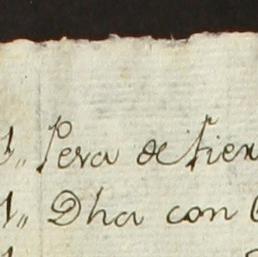 1,, Pera de tien
1,, Dha con